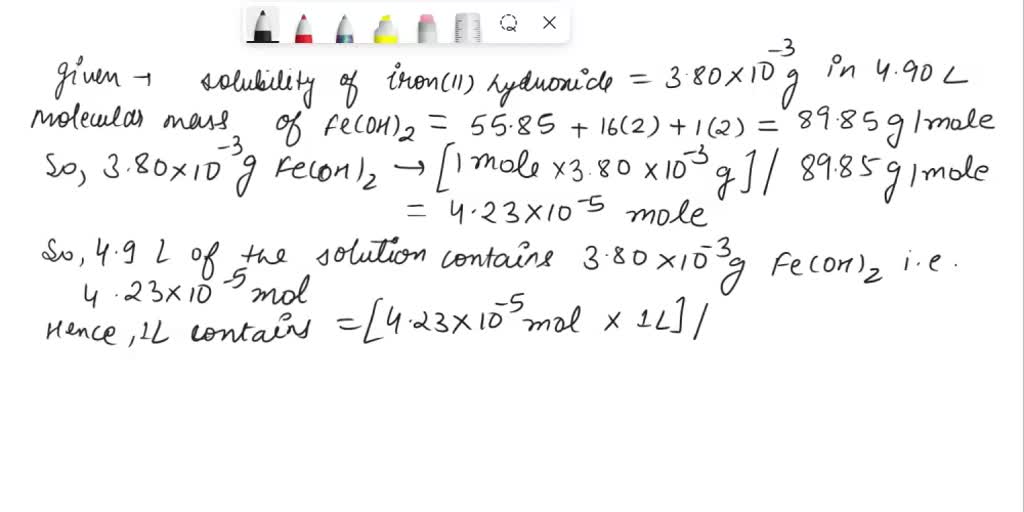 given → solubility of iron(II) hydroxide = 3.80×10⁻³g in 4.90 L
molecular mass of Fe(OH)₂ = 55.85 + 16(2) + 1(2) = 89.85 g/mole
So, 3.80×10⁻³g Fe(OH)₂ → [1 mole × 3.80 × 10⁻³ g] / 89.85 g/mole
= 4.23×10⁻⁵ mole
So, 4.9 L of the solution contains 3.80×10⁻³g Fe(OH)₂ i.e.
4.23×10⁻⁵ mol
Hence, 1L contains = [4.23×10⁻⁵ mol × 1L] /